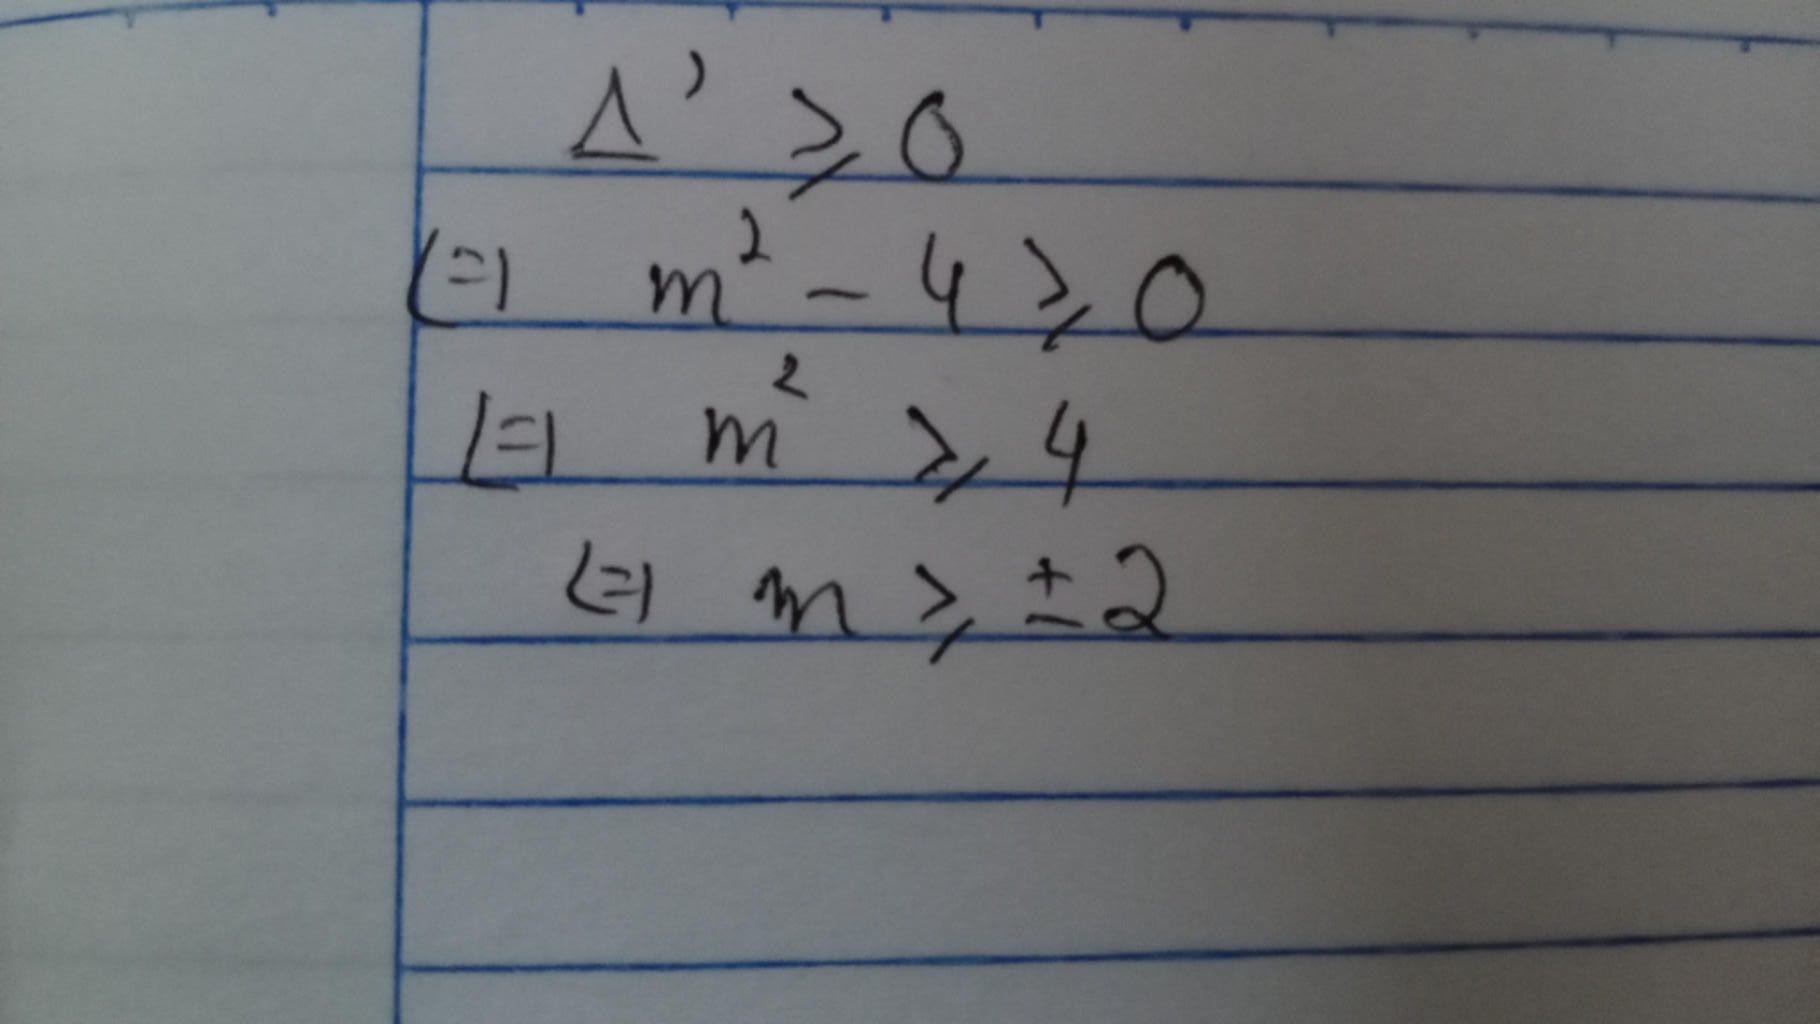 Δ' ≥ 0
<=> m² - 4 ≥ 0
<=> m² ≥ 4
<=> m ≥ ± 2